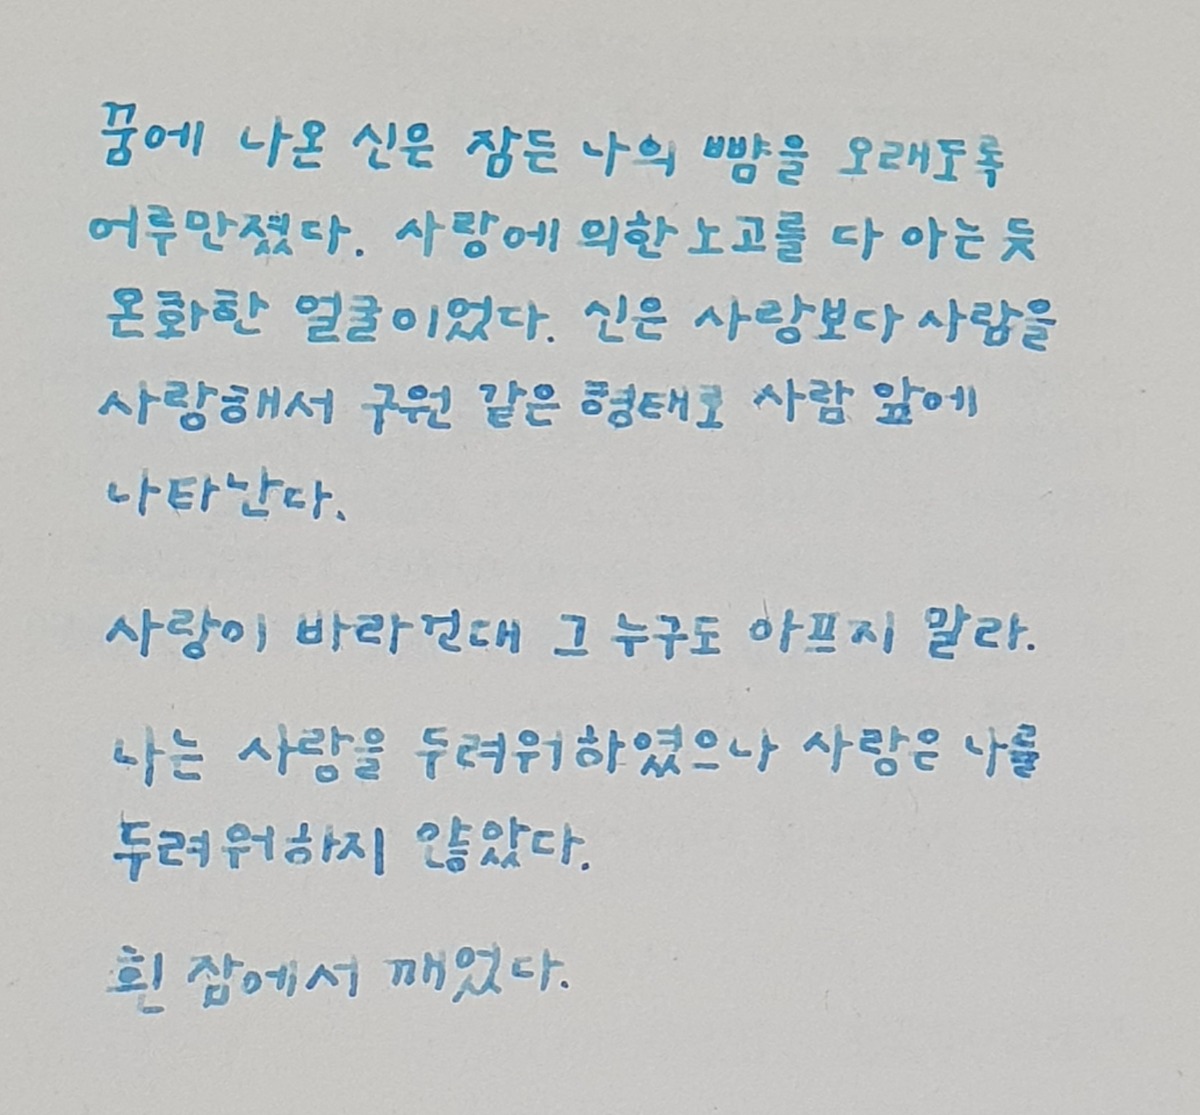 꿈에 나온 신은 잠든 나의 뺨을 오래도록
어루만졌다. 사랑에 의한 노고를 다 아는 듯
온화한 얼굴이었다. 신은 사랑보다 사람을
사랑해서 구원 같은 형태로 사람 앞에
나타난다.
사랑이 바라건대 그 누구도 아프지 말라.
나는 사랑을 두려워하였으나 사랑은 나를
두려워하지 않았다.
흰 잠에서 깨었다.